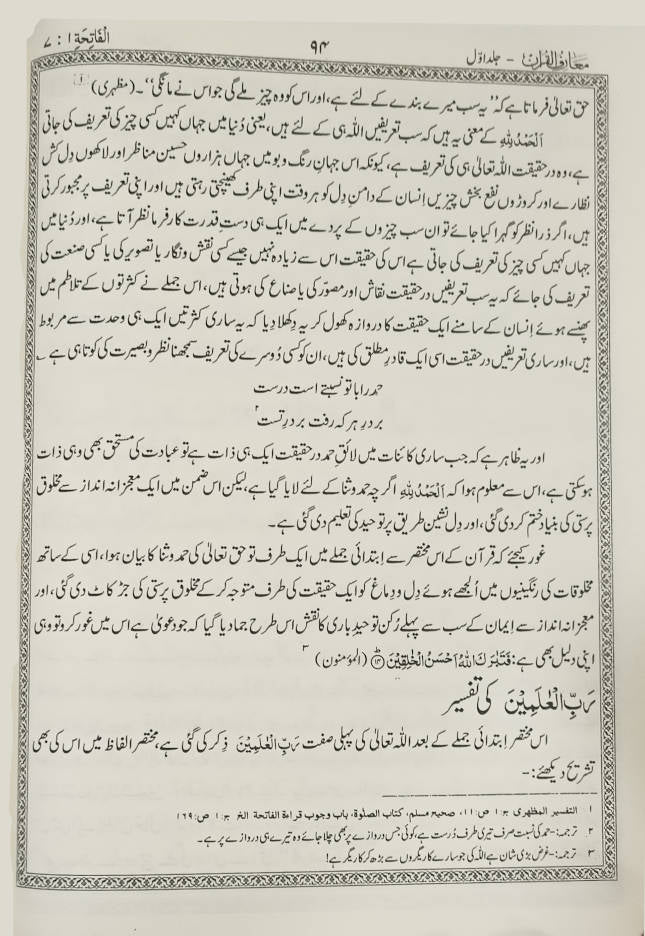 معارف القرآن - جلد اوّل ۹۴ الْفَاتِحَةِ ۱ : ۷
حق تعالیٰ فرماتا ہے کہ ”یہ سب میرے بندے کے لئے ہے، اور اس کو وہ چیز ملے گی جو اس نے مانگی“۔ (مظہری) ۱
اَلْحَمْدُ لِلّٰهِ کے معنی یہ ہیں کہ سب تعریفیں اللہ ہی کے لئے ہیں، یعنی دُنیا میں جہاں کہیں کسی چیز کی تعریف کی جاتی
ہے، وہ درحقیقت اللہ تعالیٰ ہی کی تعریف ہے، کیونکہ اس جہانِ رنگ و بو میں جہاں ہزاروں حسین مناظر اور لاکھوں دِل کش
نظارے اور کروڑوں نفع بخش چیزیں اِنسان کے دامنِ دِل کو ہر وقت اپنی طرف کھینچتی رہتی ہیں اور اپنی تعریف پر مجبور کرتی
ہیں، اگر ذرا نظر کو گہرا کیا جائے تو ان سب چیزوں کے پردے میں ایک ہی دستِ قدرت کارفرما نظر آتا ہے، اور دُنیا میں
جہاں کہیں کسی چیز کی تعریف کی جاتی ہے اس کی حقیقت اس سے زیادہ نہیں جیسے کسی نقش و نگار یا تصویر کی یا کسی صنعت کی
تعریف کی جائے کہ یہ سب تعریفیں درحقیقت نقاش اور مصوّر کی یا صناع کی ہوتی ہیں، اس جملے نے کثرتوں کے تلاطم میں
پھنسے ہوئے اِنسان کے سامنے ایک حقیقت کا دروازہ کھول کر یہ دِکھلا دِیا کہ یہ ساری کثرتیں ایک ہی وحدت سے مربوط
ہیں، اور ساری تعریفیں درحقیقت اسی ایک قادرِ مطلق کی ہیں، ان کو کسی دُوسرے کی تعریف سمجھنا نظر و بصیرت کی کوتاہی ہے ؎
حمد را با تو نسبتے است درست
بر درِ ہر کہ رفت بر درِ تست ۲
اور یہ ظاہر ہے کہ جب ساری کائنات میں لائقِ حمد درحقیقت ایک ہی ذات ہے تو عبادت کی مستحق بھی وہی ذات
ہوسکتی ہے، اس سے معلوم ہوا کہ اَلْحَمْدُ لِلّٰهِ اگرچہ حمد و ثنا کے لئے لایا گیا ہے، لیکن اس ضمن میں ایک معجزانہ انداز سے مخلوق
پرستی کی بنیاد ختم کر دی گئی، اور دِل نشین طریق پر توحید کی تعلیم دی گئی ہے۔
غور کیجئے کہ قرآن کے اس مختصر سے اِبتدائی جملے میں ایک طرف تو حق تعالیٰ کی حمد و ثنا کا بیان ہوا، اسی کے ساتھ
مخلوقات کی رنگینیوں میں اُلجھے ہوئے دِل و دِماغ کو ایک حقیقت کی طرف متوجہ کرکے مخلوق پرستی کی جڑ کاٹ دی گئی، اور
معجزانہ انداز سے ایمان کے سب سے پہلے رُکن توحیدِ باری کا نقش اس طرح جما دیا گیا کہ جو دعویٰ ہے اس میں غور کرو تو وہی
اپنی دلیل بھی ہے: فَتَبٰرَكَ اللّٰهُ اَحْسَنُ الْخٰلِقِيْنَ ۝۱۴ (المؤمنون) ۳
رَبِّ الْعٰلَمِيْنَ کی تفسیر
اس مختصر اِبتدائی جملے کے بعد اللہ تعالیٰ کی پہلی صفت رَبِّ الْعٰلَمِيْنَ ذِکر کی گئی ہے، مختصر الفاظ میں اس کی بھی
تشریح دیکھئے:-
۱ التفسیر المظھری ج:۱ ص:۱۱، صحیح مسلم، کتاب الصلوٰة، باب وجوب قراءة الفاتحة الخ ج:۱ ص:۱۶۹
۲ ترجمہ:- حمد کی نسبت صرف تیری طرف دُرست ہے، کوئی جس دروازے پر بھی چلا جائے وہ تیرے ہی دروازے پر ہے۔
۳ ترجمہ:- غرض بڑی شان ہے اللہ کی جو سارے کاریگروں سے بڑھ کر کاریگر ہے!